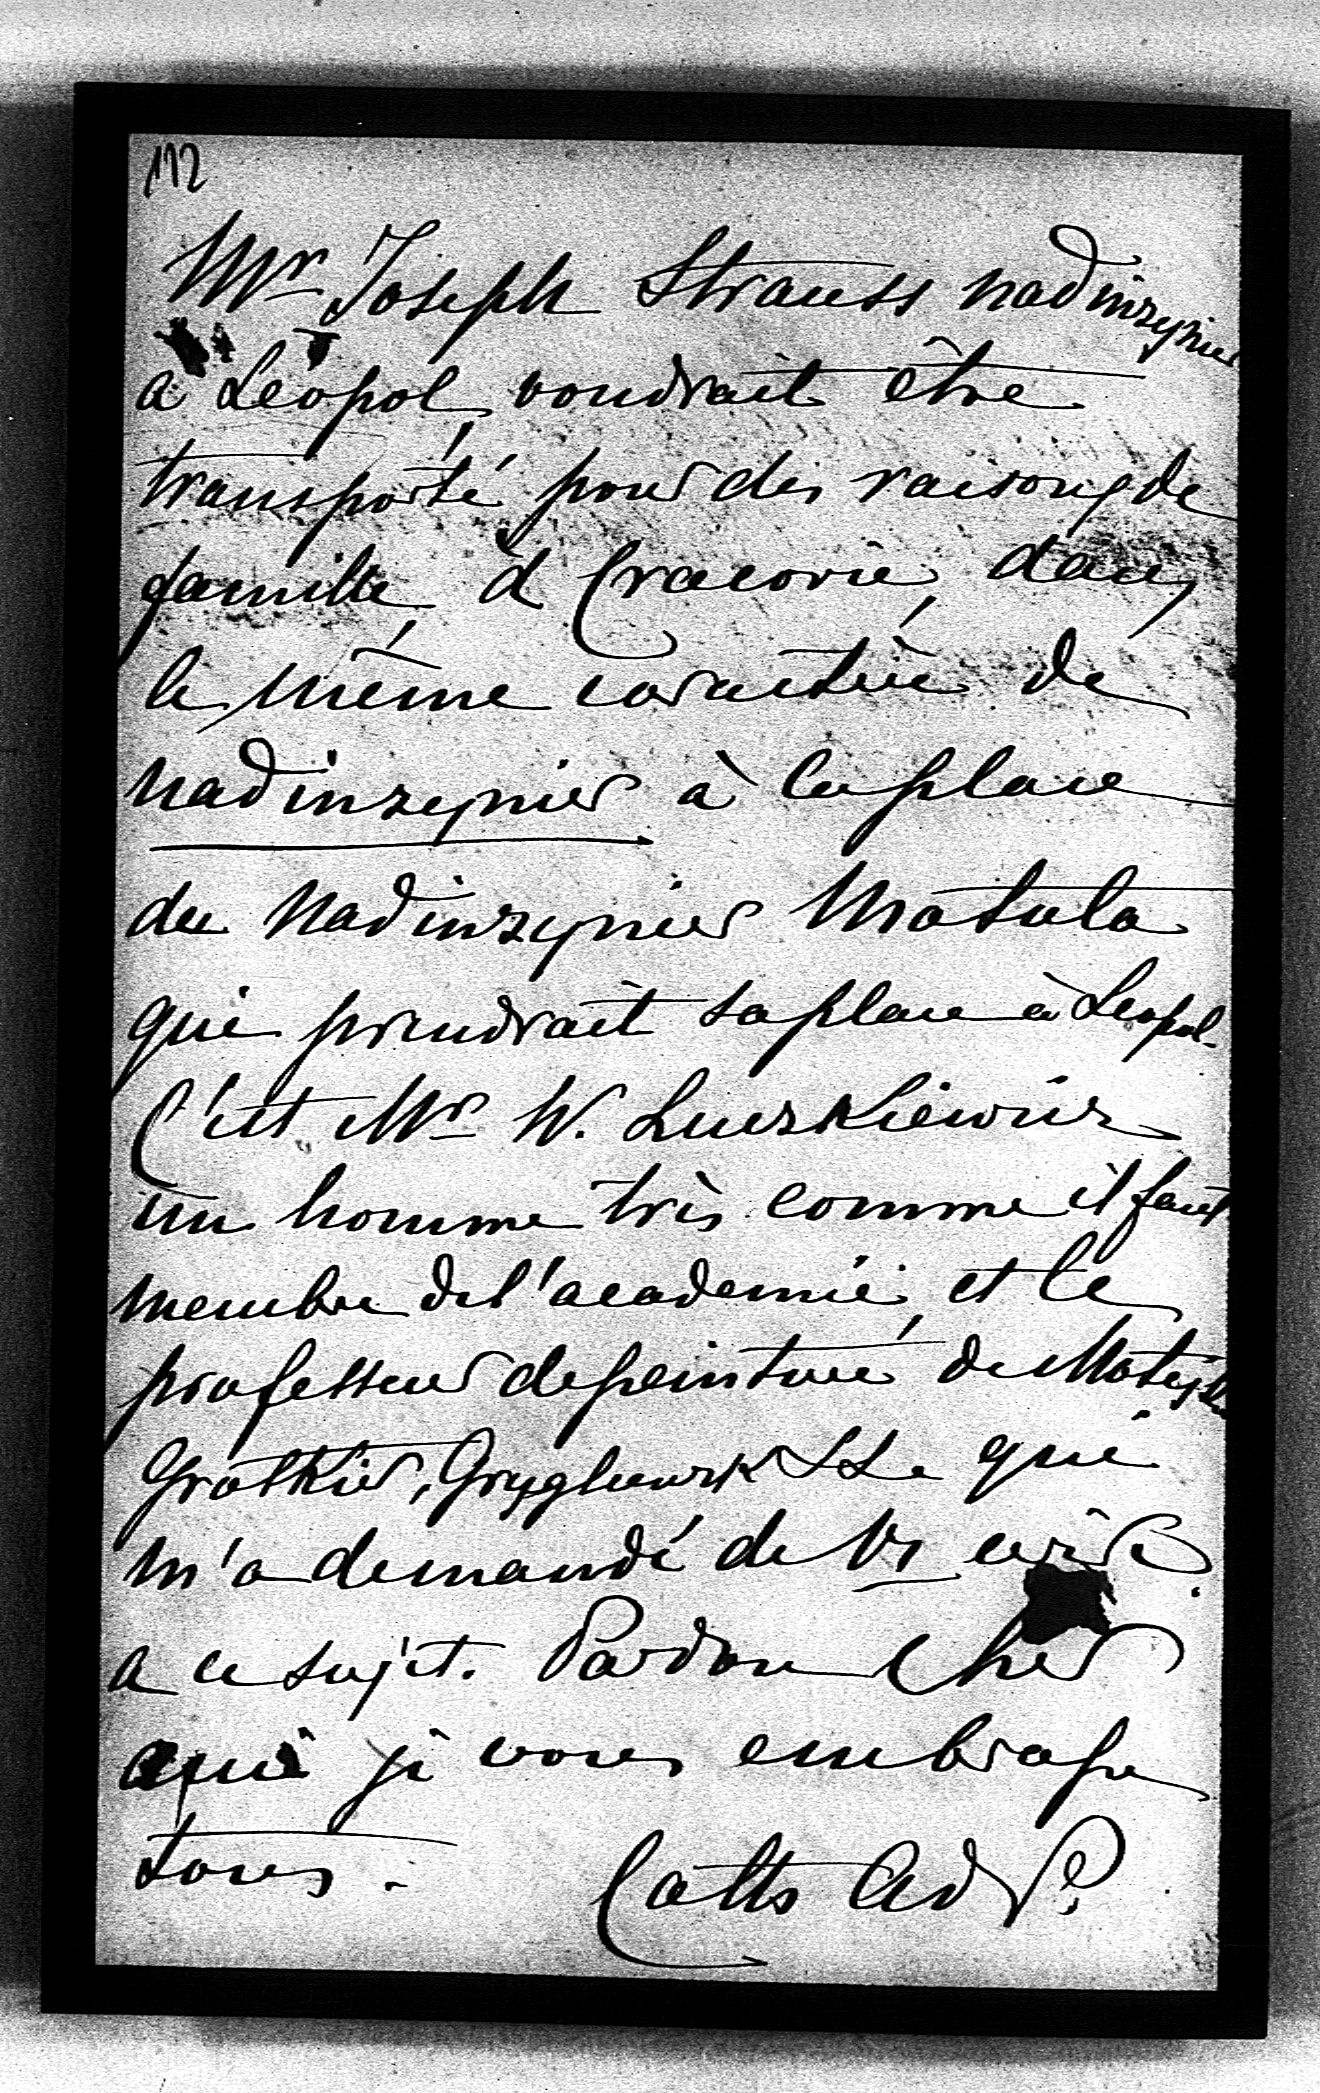 112
Mr Joseph Strauss nadinzynier
a Léopol, voudrait être
transporté pour des raisons de
famille à Cracovie, dans
le même caractère de
nadinzynier à la place
du nadinzynier Matula
qui prendrait sa place à Leopol.
C'est Mr W. Łuszkiewicz
un homme très comme il faut
membre de l'academie, et le
professeur de peinture de Matejko
Grottkier, Gryglewsk &&. qui
m'a demandé de Vs écrire
a ce sujet. Pardon cher
ami je vous embrasse
tous.